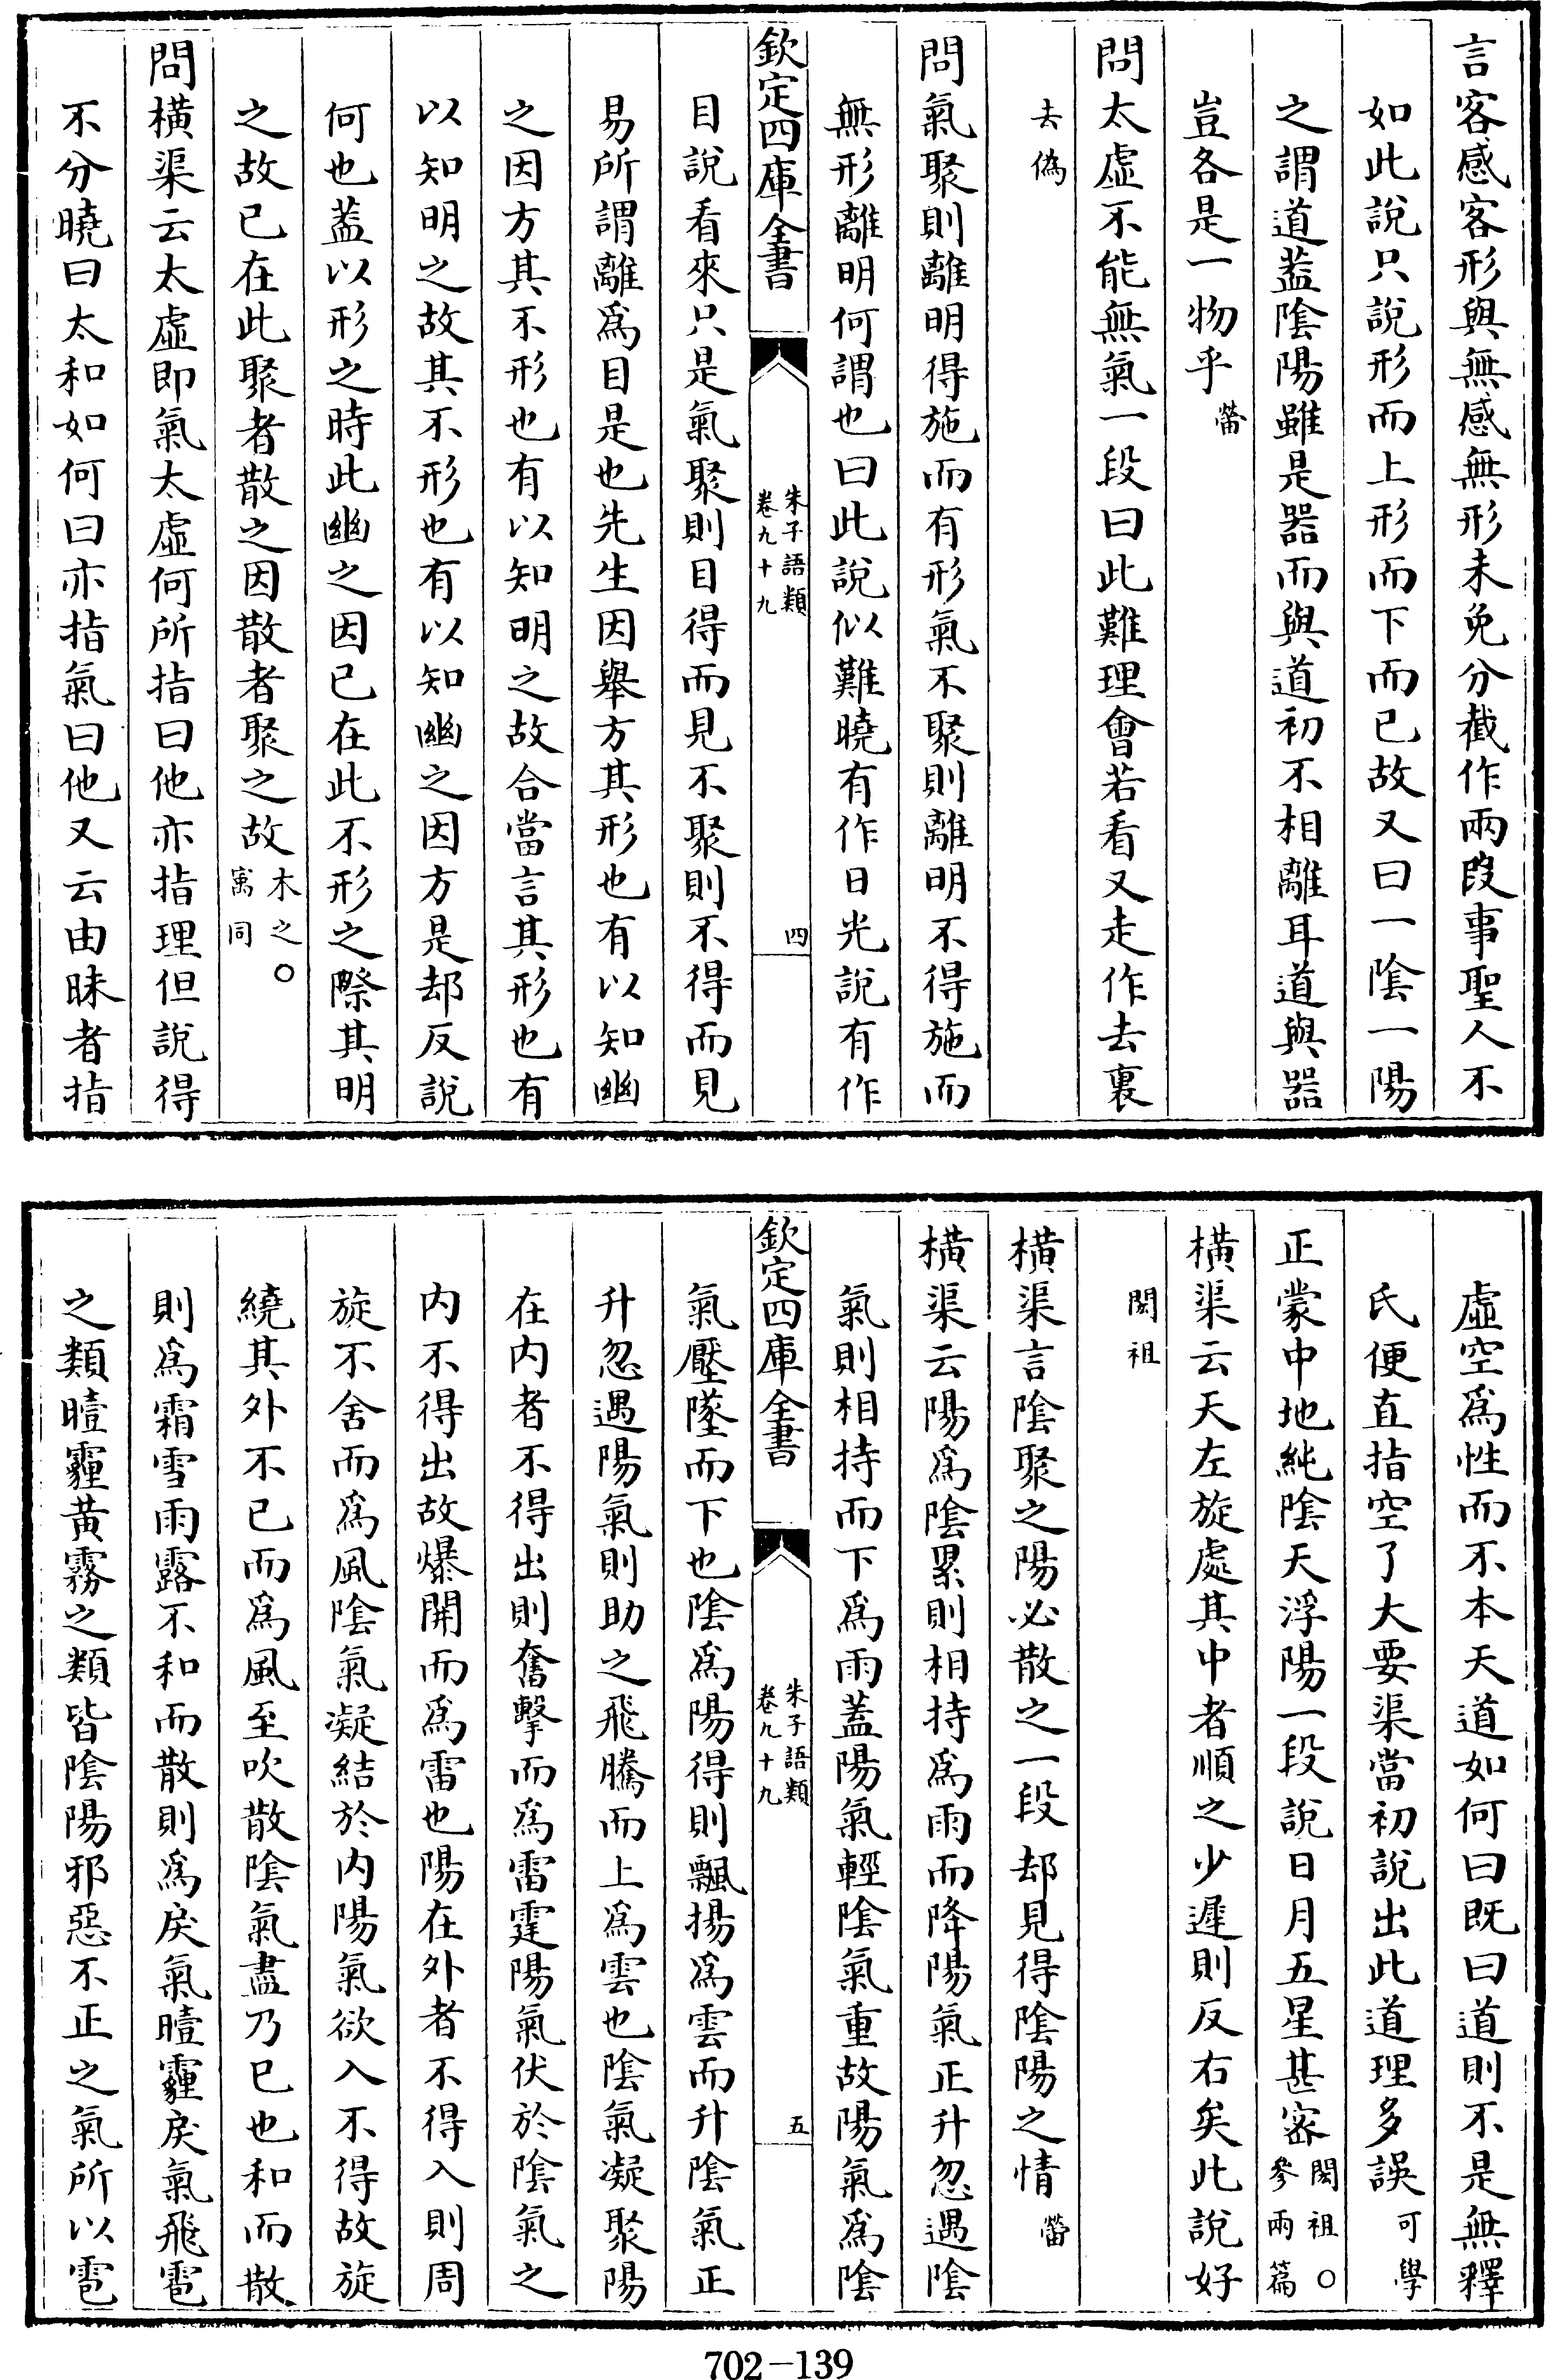 言客感客形與無感無形未免分截作兩段事聖人不
如此說只說形而上形而下而已故又曰一陰一陽
之謂道葢陰陽雖是器而與道初不相離耳道與器
豈各是一物乎㽦
問太虛不能無氣一段曰此難理會若看又走作去裏
去偽
問氣聚則離明得施而有形氣不聚則離明不得施而
無形離明何謂也曰此說似難曉有作日光說有作
欽定四庫全書
朱子語類
卷九十九
四
目說看來只是氣聚則目得而見不聚則不得而見
易所謂離爲目是也先生因舉方其形也有以知幽
之因方其不形也有以知明之故合當言其形也有
以知明之故其不形也有以知幽之因方是却反說
何也葢以形之時此幽之因已在此不形之際其明
之故已在此聚者散之因散者聚之故木之○
寓同
問橫渠云太虛即氣太虛何所指曰他亦指理但說得
不分曉曰太和如何曰亦指氣曰他又云由昧者指
虛空爲性而不本天道如何曰既曰道則不是無釋
氏便直指空了大要渠當初說出此道理多誤可學
正蒙中地純陰天浮陽一段說日月五星甚密閎祖○
參兩篇
橫渠云天左旋處其中者順之少遲則反右矣此說好
閎祖
橫渠言陰聚之陽必散之一段却見得陰陽之情㽦
橫渠云陽爲陰累則相持爲雨而降陽氣正升忽遇陰
氣則相持而下爲雨蓋陽氣輕陰氣重故陽氣爲陰
欽定四庫全書
朱子語類
卷九十九
五
氣壓墜而下也陰爲陽得則飄揚爲雲而升陰氣正
升忽遇陽氣則助之飛騰而上爲雲也陰氣凝聚陽
在内者不得出則奮擊而爲雷霆陽氣伏於陰氣之
内不得出故爆開而爲雷也陽在外者不得入則周
旋不舍而爲風陰氣凝結於内陽氣欲入不得故旋
繞其外不已而爲風至吹散陰氣盡乃已也和而散
則爲霜雪雨露不和而散則爲戾氣曀霾戾氣飛雹
之類曀霾黃霧之類皆陰陽邪惡不正之氣所以雹
702-139